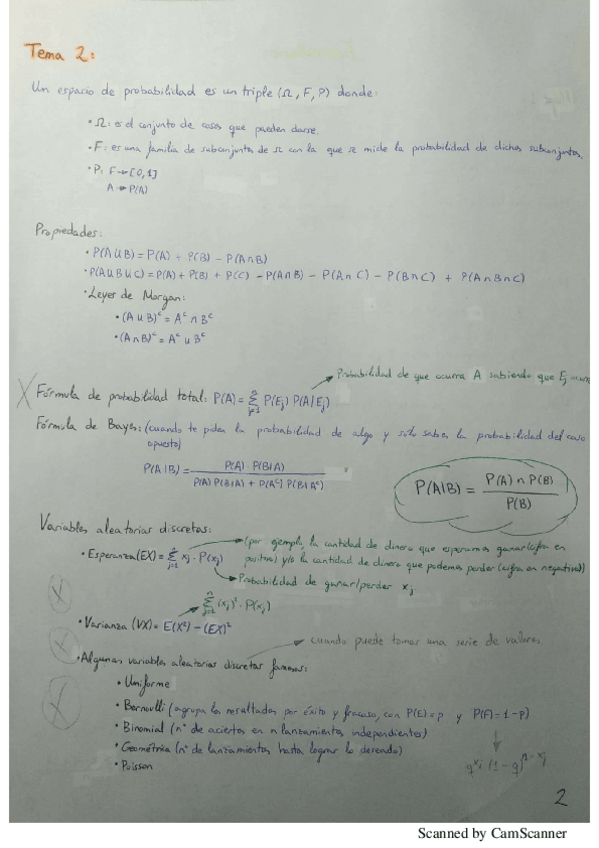 Tema 2:
Un espacio de probabilidad es un triple (Ω, F, P) donde:
• Ω: es el conjunto de casos que pueden darse.
• F: es una familia de subconjuntos de Ω con la que se mide la probabilidad de dichos subconjuntos.
• P: F → [0,1]
A → P(A)
Propiedades:
• P(A∪B) = P(A) + P(B) - P(A∩B)
• P(A∪B∪C) = P(A) + P(B) + P(C) - P(A∩B) - P(A∩C) - P(B∩C) + P(A∩B∩C)
• Leyes de Morgan:
• (A∪B)ᶜ = Aᶜ ∩ Bᶜ
• (A∩B)ᶜ = Aᶜ ∪ Bᶜ
Probabilidad de que ocurra A sabiendo que Ej
Fórmula de probabilidad total: P(A) = Σ P(Ej) P(A|Ej)
Fórmula de Bayes: (cuando te piden la probabilidad de algo y solo sabes la probabilidad del caso
opuesto)
P(A|B) = P(A) · P(B|A) / P(A) P(B|A) + P(Aᶜ) P(B|Aᶜ)
P(A|B) = P(A) ∩ P(B) / P(B)
Variables aleatorias discretas:
(por ejemplo, la cantidad de dinero que esperamos ganar (cifra en
• Esperanza (EX) = Σ xj · P(xj)
positivo) y/o la cantidad de dinero que podemos perder (cifra en negativo))
Probabilidad de ganar/perder xj
Σ (xj)² · P(xj)
• Varianza (VX) = E(X²) - (EX)²
cuando puede tomar una serie de valores
• Algunas variables aleatorias discretas famosas:
• Uniforme
• Bernoulli (agrupa los resultados por éxito y fracaso, con P(E)=p y P(F)=1-p)
• Binomial (nº de aciertos en n lanzamientos independientes)
• Geométrica (nº de lanzamientos hasta lograr lo deseado)
q^xj (1-q)^1-xj
• Poisson
2
Scanned by CamScanner